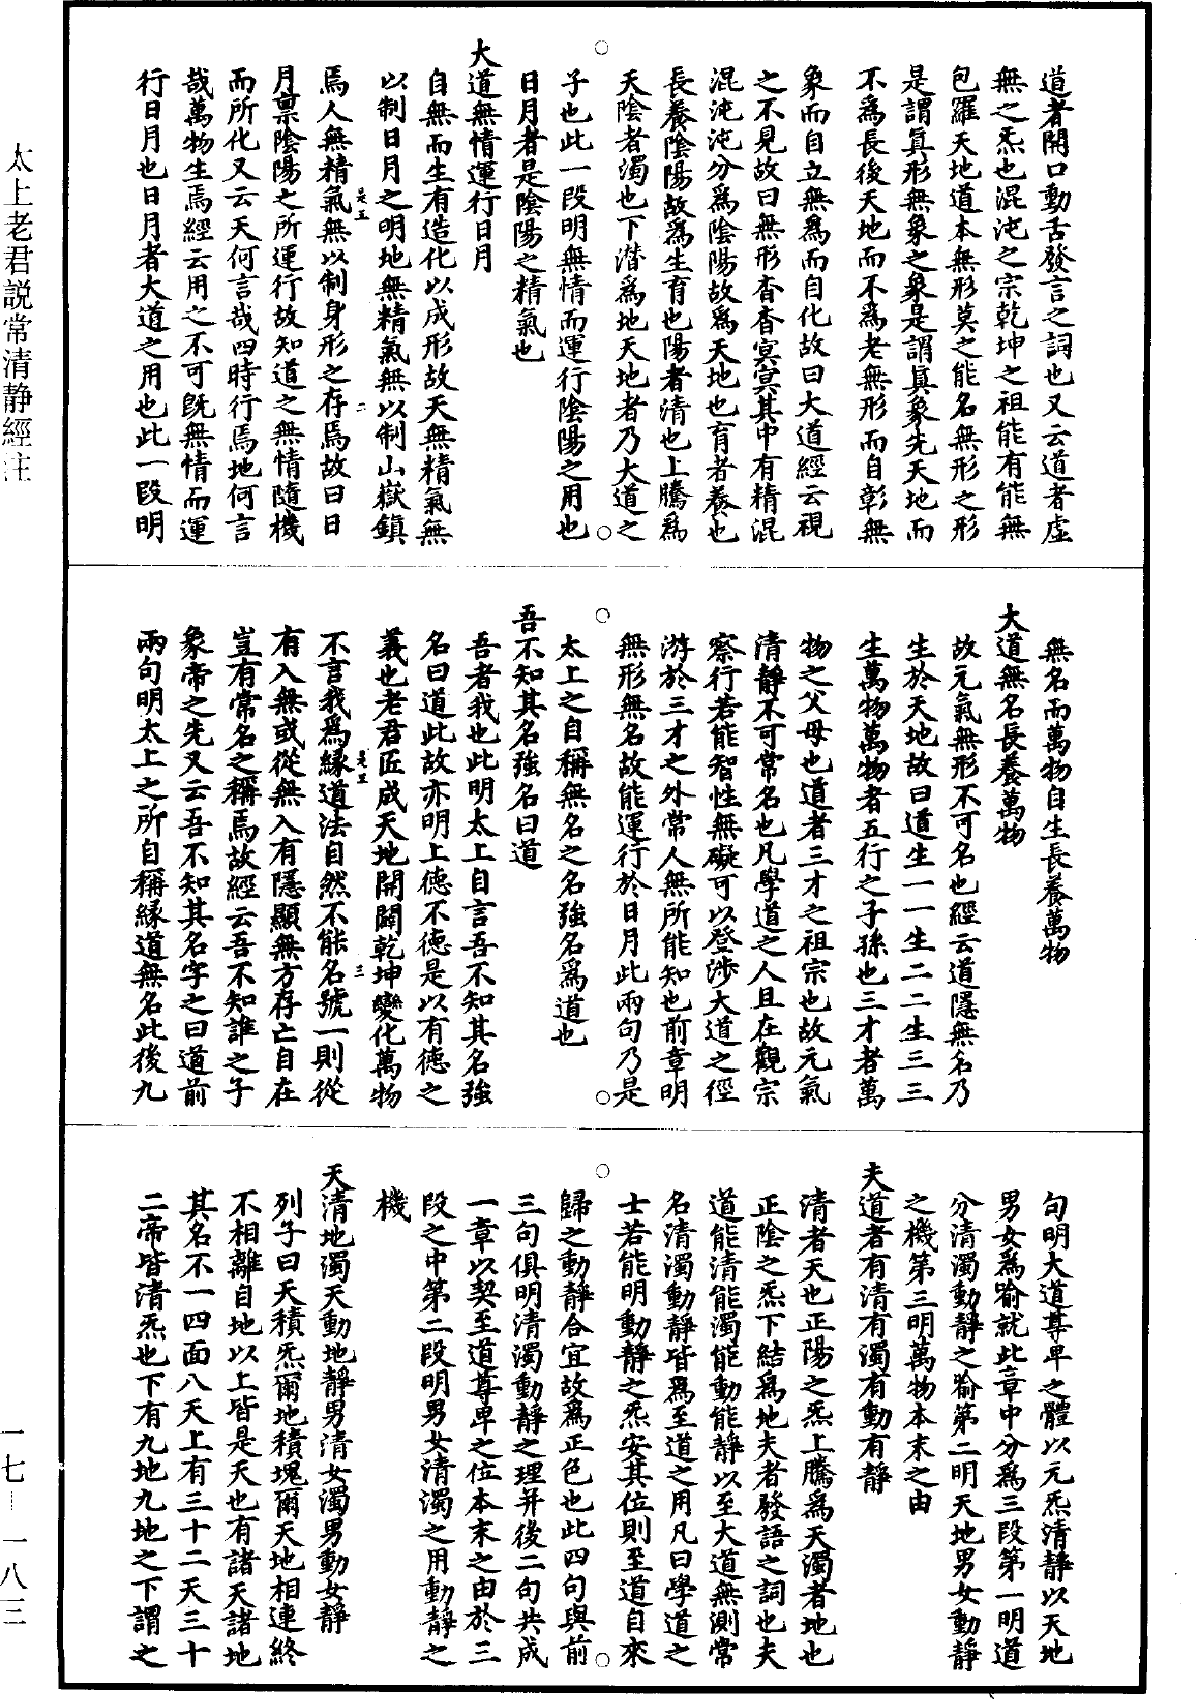 道者開口動舌發言之詞也又云道者虛
無之炁也混沌之宗乾坤之祖能有能無
包羅天地道本無形莫之能名無形之形
是謂真形無象之象是謂真象先天地而
不為長後天地而不為老無形而自彰無
象而自立無為而自化故曰大道經云視
之不見故曰無形杳杳冥冥其中有精混
混沌沌分為陰陽故為天地也育者養也
長養陰陽故為生育也陽者清也上騰為
天陰者濁也下潛為地天地者乃大道之
子也此一段明無情而運行陰陽之用也
日月者是陰陽之精氣也
大道無情運行日月
自無而生有造化以成形故天無精氣無
以制日月之明地無精氣無以制山嶽鎮
焉人無精氣無以制身形之存焉故曰日
是五
二
月稟陰陽之所運行故知道之無情隨機
而所化又云天何言哉四時行焉地何言
哉萬物生焉經云用之不可既無情而運
行日月也日月者大道之用也此一段明
無名而萬物自生長養萬物
大道無名長養萬物
故元氣無形不可名也經云道隱無名乃
生於天地故曰道生一一生二二生三三
生萬物萬物者五行之子孫也三才者萬
物之父母也道者三才之祖宗也故元氣
清靜不可常名也凡學道之人且在觀宗
察行若能智性無礙可以登涉大道之徑
游於三才之外常人無所能知也前章明
無形無名故能運行於日月此兩句乃是
太上之自稱無名之名強名為道也
吾不知其名強名曰道
吾者我也此明太上自言吾不知其名強
名曰道此故亦明上德不德是以有德之
義也老君匠成天地開闢乾坤變化萬物
不言我為緣道法自然不能名號一則從
是五
三
有入無或從無入有隱顯無方存亡自在
豈有常名之稱焉故經云吾不知誰之子
象帝之先又云吾不知其名字之曰道前
兩句明太上之所自稱緣道無名此後九
句明大道尊卑之體以元炁清靜以天地
男女為喻就此章中分為三段第一明道
分清濁動靜之喻第二明天地男女動靜
之機第三明萬物本末之由
夫道者有清有濁有動有靜
清者天也正陽之炁上騰為天濁者地也
正陰之炁下結為地夫者發語之詞也夫
道能清能濁能動能靜以至大道無測常
名清濁動靜皆為至道之用凡曰學道之
士若能明動靜之炁安其位則至道自來
歸之動靜合宜故為正色也此四句與前
三句俱明清濁動靜之理并後二句共成
一章以契至道尊卑之位本末之由於三
段之中第二段明男女清濁之用動靜之
機
天清地濁天動地靜男清女濁男動女靜
列子曰天積炁爾地積塊爾天地相連終
不相離自地以上皆是天也有諸天諸地
其名不一四面八天上有三十二天三十
二帝皆清炁也下有九地九地之下謂之
太上老君說常清靜經注
一七—一八三